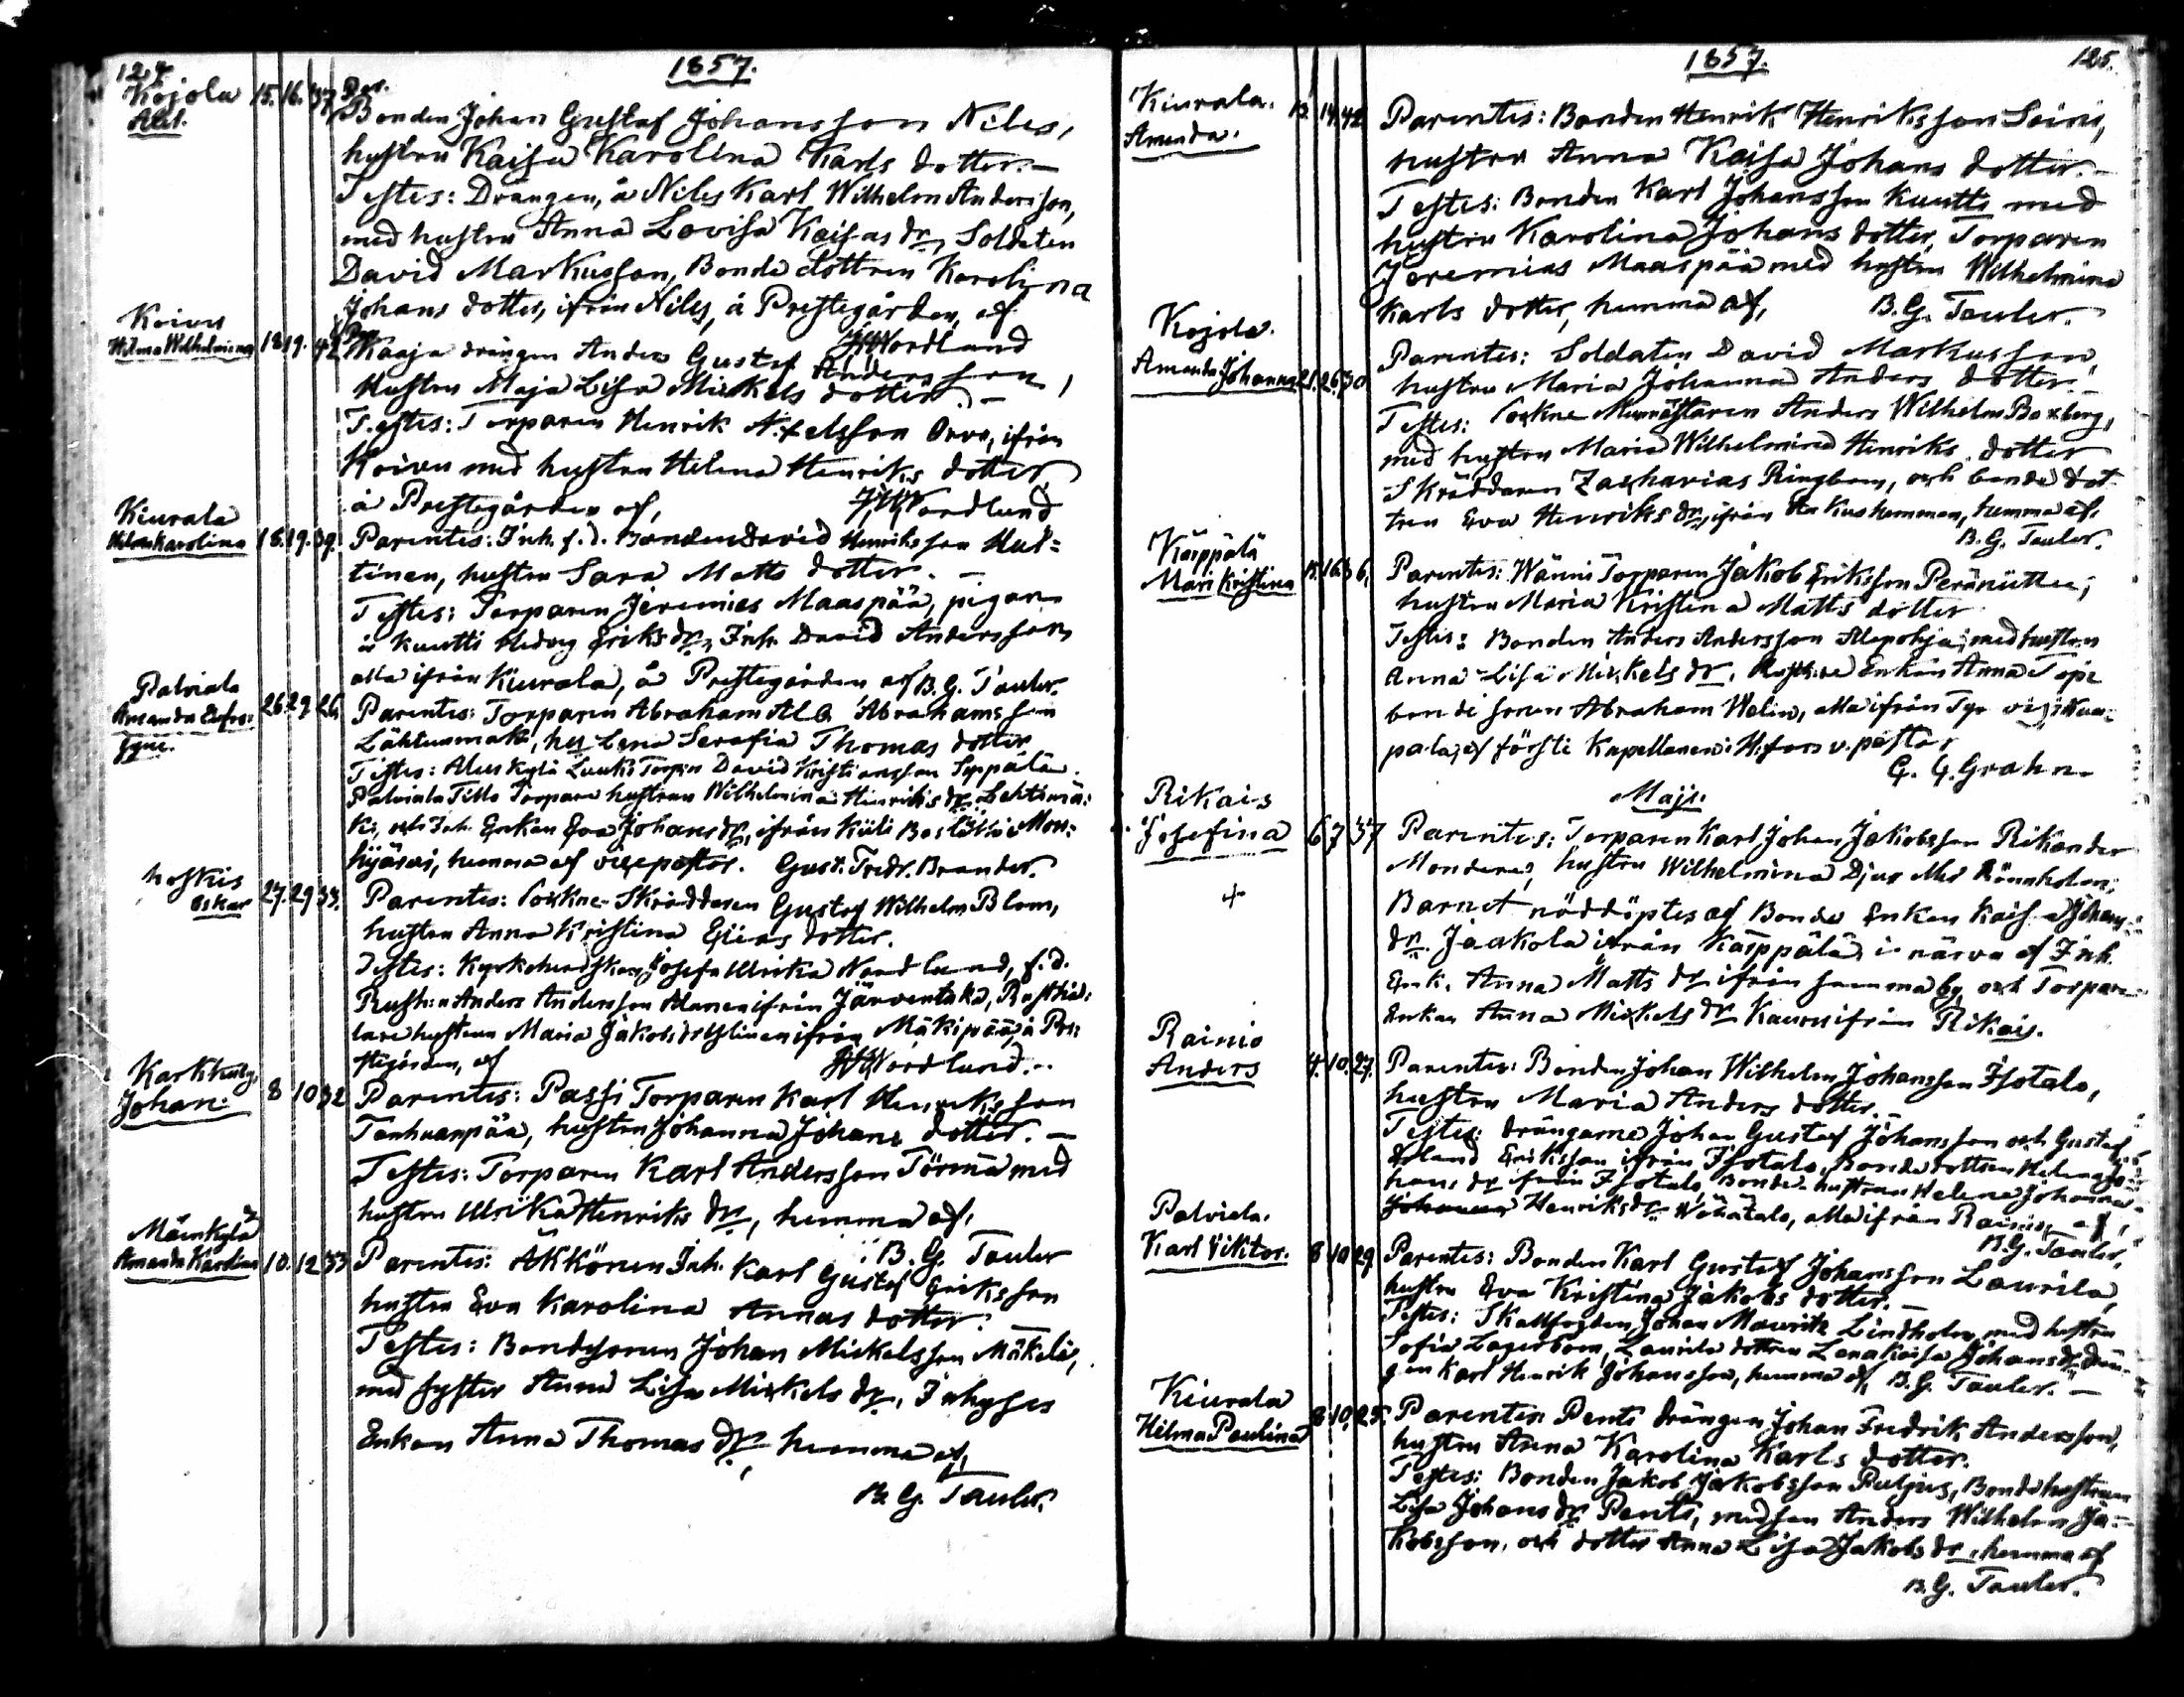 124
1857.
Kojola 15. 16. 37 Par.
Bonden Johan Gustaf Johansson Niles,
hustru Kaisa Karolina Karls dotter. —
Testes: Drängen, å Niles Karl Wilhelm Andersson,
med hustru Anna Lovisa Kaisas dr, Soldaten
David Markusson, Bonde dottren Karolina
Johans dotter, ifrån Niles, å Prestegården, af
Nordland
Koivu
Hilma Wilhelmina 18 19. 42
Kaaja drängen Anders Gustaf Andersson,
Hustru Maja Lisa Mickels dotter. —
Testes: Torparen Henrik Axelsson Orvo, ifrån
Koivu med hustru Helena Henriks dotter
å Prestegården af, Nordlund
Kiurala
Karolina 18. 19. 39.
Parentes: Inh. f.d. Bonden David Henriksson Hul=
tinen, hustru Sara Matts dotter. —
Testes: Torparen Jeremias Maaspää, pigan
å Kuutti Hedvig Eriks dr, Inh. David Andersson
alla ifrån Kiurala, å Prestegården af B. G. Tauler.
Palviala
Amanda Eufro=
syne. 26. 29 26
Parentes: Torparen Abraham Abrahamsson
Lähteenmäki, hu Lena Serafia Thomas dotter
Testes: Alus Kylä Luuks Torp:n David Kristiansson Seppälä
Palviala Tillo Torpare hustrun Wilhelmina Henriks dr Lehtimä=
ki, och Inh. Enkan Eva Johans dr, ifrån Küli i Mou=
hijärvi, hemma af vicepastor. Gust. Fredr. Brander.
Hoskis
Oskar 27. 29 33.
Parentes: Sockne-Skräddaren Gustaf Wilhelm Blom,
hustru Anna Kristina Elias dotter.
Testes: Josefa Ulrika Nordlund, f.d.
Rusth:n Anders Andersson ifrån Järventaka, Rusthål=
lare hustrun Maria Jakobs dr Ylinen ifrån Mäkipää, å Pre=
stegården, af Nordlund. —
Johan. 8 10 32
Parentes: Passi Torparen Karl Henriksson
Tanhuanpää, hustru Johanna Johans dotter. —
Testes: Torparen Karl Andersson Törmä med
hustru Ulrika Henriks dr, hemma af,
B. G. Tauler
Mäenkylä
Amanda Karolina 10. 12 33
Parentes: Äkkönen Inh. Karl Gustaf Eriksson
hustru Eva Karolina Annas dotter.
Testes: Bondesonen Johan Mickelsson Mäkelä,
med syster Anna Lisa Mickels dr, Inhyses
Enkan Anna Thomas dr hemma af,
B. G. Tauler.
1857.
125.
Kiurala.
Amanda. 13. 14. 42
Parentes: Bonden Henrik Henriksson Soini,
hustru Anna Kaisa Johans dotter. —
Testes: Bonden Karl Johansson Kuutti med
hustru Karolina Johans dotter, Torparen
Jeremias Maaspää med hustru Wilhelmina
Karls dotter, hemma af, B. G. Tauler.
Kojola.
Amanda Johanna 21. 26. 30
Parentes: Soldaten David Markusson,
hustru Maria Johanna Anders dotter. —
Testes: Sockne Anders Wilhelm Boxberg,
med hustru Maria Wilhelmina Henriks dotter
Skräddaren Zacharias Ringbom, och bonde dot
tren Eva Henriks dr, ifrån hemman, hemma af.
B. G. Tauler.
Käppälä
Mari Kristina 15. 16. 36.
Parentes: Wänni Torparen Jakob Eriksson Peräniittu,
hustru Maria Kristina Matts dotter
Testes: Bonden Anders Andersson Alapohja, med hustrun
Anna-Lisa Mickels dr. Enkan Anna
sonen Abraham Welin, alla ifrån
af förste Kapellanen i H:fors v. pastor
G. G. Grahn.
Maji.
Rikais
Josefina 6 7 37
+
Parentes: Torparen Karl Johan Jakobsson Rikander
hustru Wilhelmina
Barnet nöddöptes af Bonde Enkan Kaisa Johans
dr. Jaakola ifrån Käppälä, i närva af Inh.
Enk. Anna Matts dr ifrån samma by och Torpare
Enkan Anna Mickels dr Kauroi ifrån Rikais.
Rainio
Anders 4. 10. 27.
Parentes: Bonden Johan Wilhelm Johansson Isotalo,
hustru Maria Anders dotter. —
Testes: drängarne Johan Gustaf Johansson och Gustaf
Erland Eriksson ifrån Isotalo, Bonde dottren Helena Jo=
hans dr ifrån Isotalo, Bonde-hustrun Helena Johanna
Henriks dr Wähätalo, alla ifrån Rainio, af,
B. G. Tauler.
Palviala.
Karl Viktor. 8 10 29
Parentes: Bonden Karl Gustaf Johansson Laurila,
hustru Eva Kristina Jakobs dotter. —
Testes: Skallfogden Johan Mauritz Lindholm med hustru
Sofia Lagerbom, Laurila dottren Lena Kaisa Johans dr, drän=
gen Karl Henrik Johansson, hemma af, B. G. Tauler. —
Kiurala
Hilma Paulina 8 10. 25.
Parentes: Penti drängen Johan Fredrik Andersson,
hustru Anna Karolina Karls dotter.
Testes: Bonden Jakob Jakobsson Ruljus, Bonde hustrun
Lisa Johans dr Penti, med son Anders Wilhelm Ja=
kobsson, och dotter Anna Lisa Jakobs dr, hemma af
B. G. Tauler.